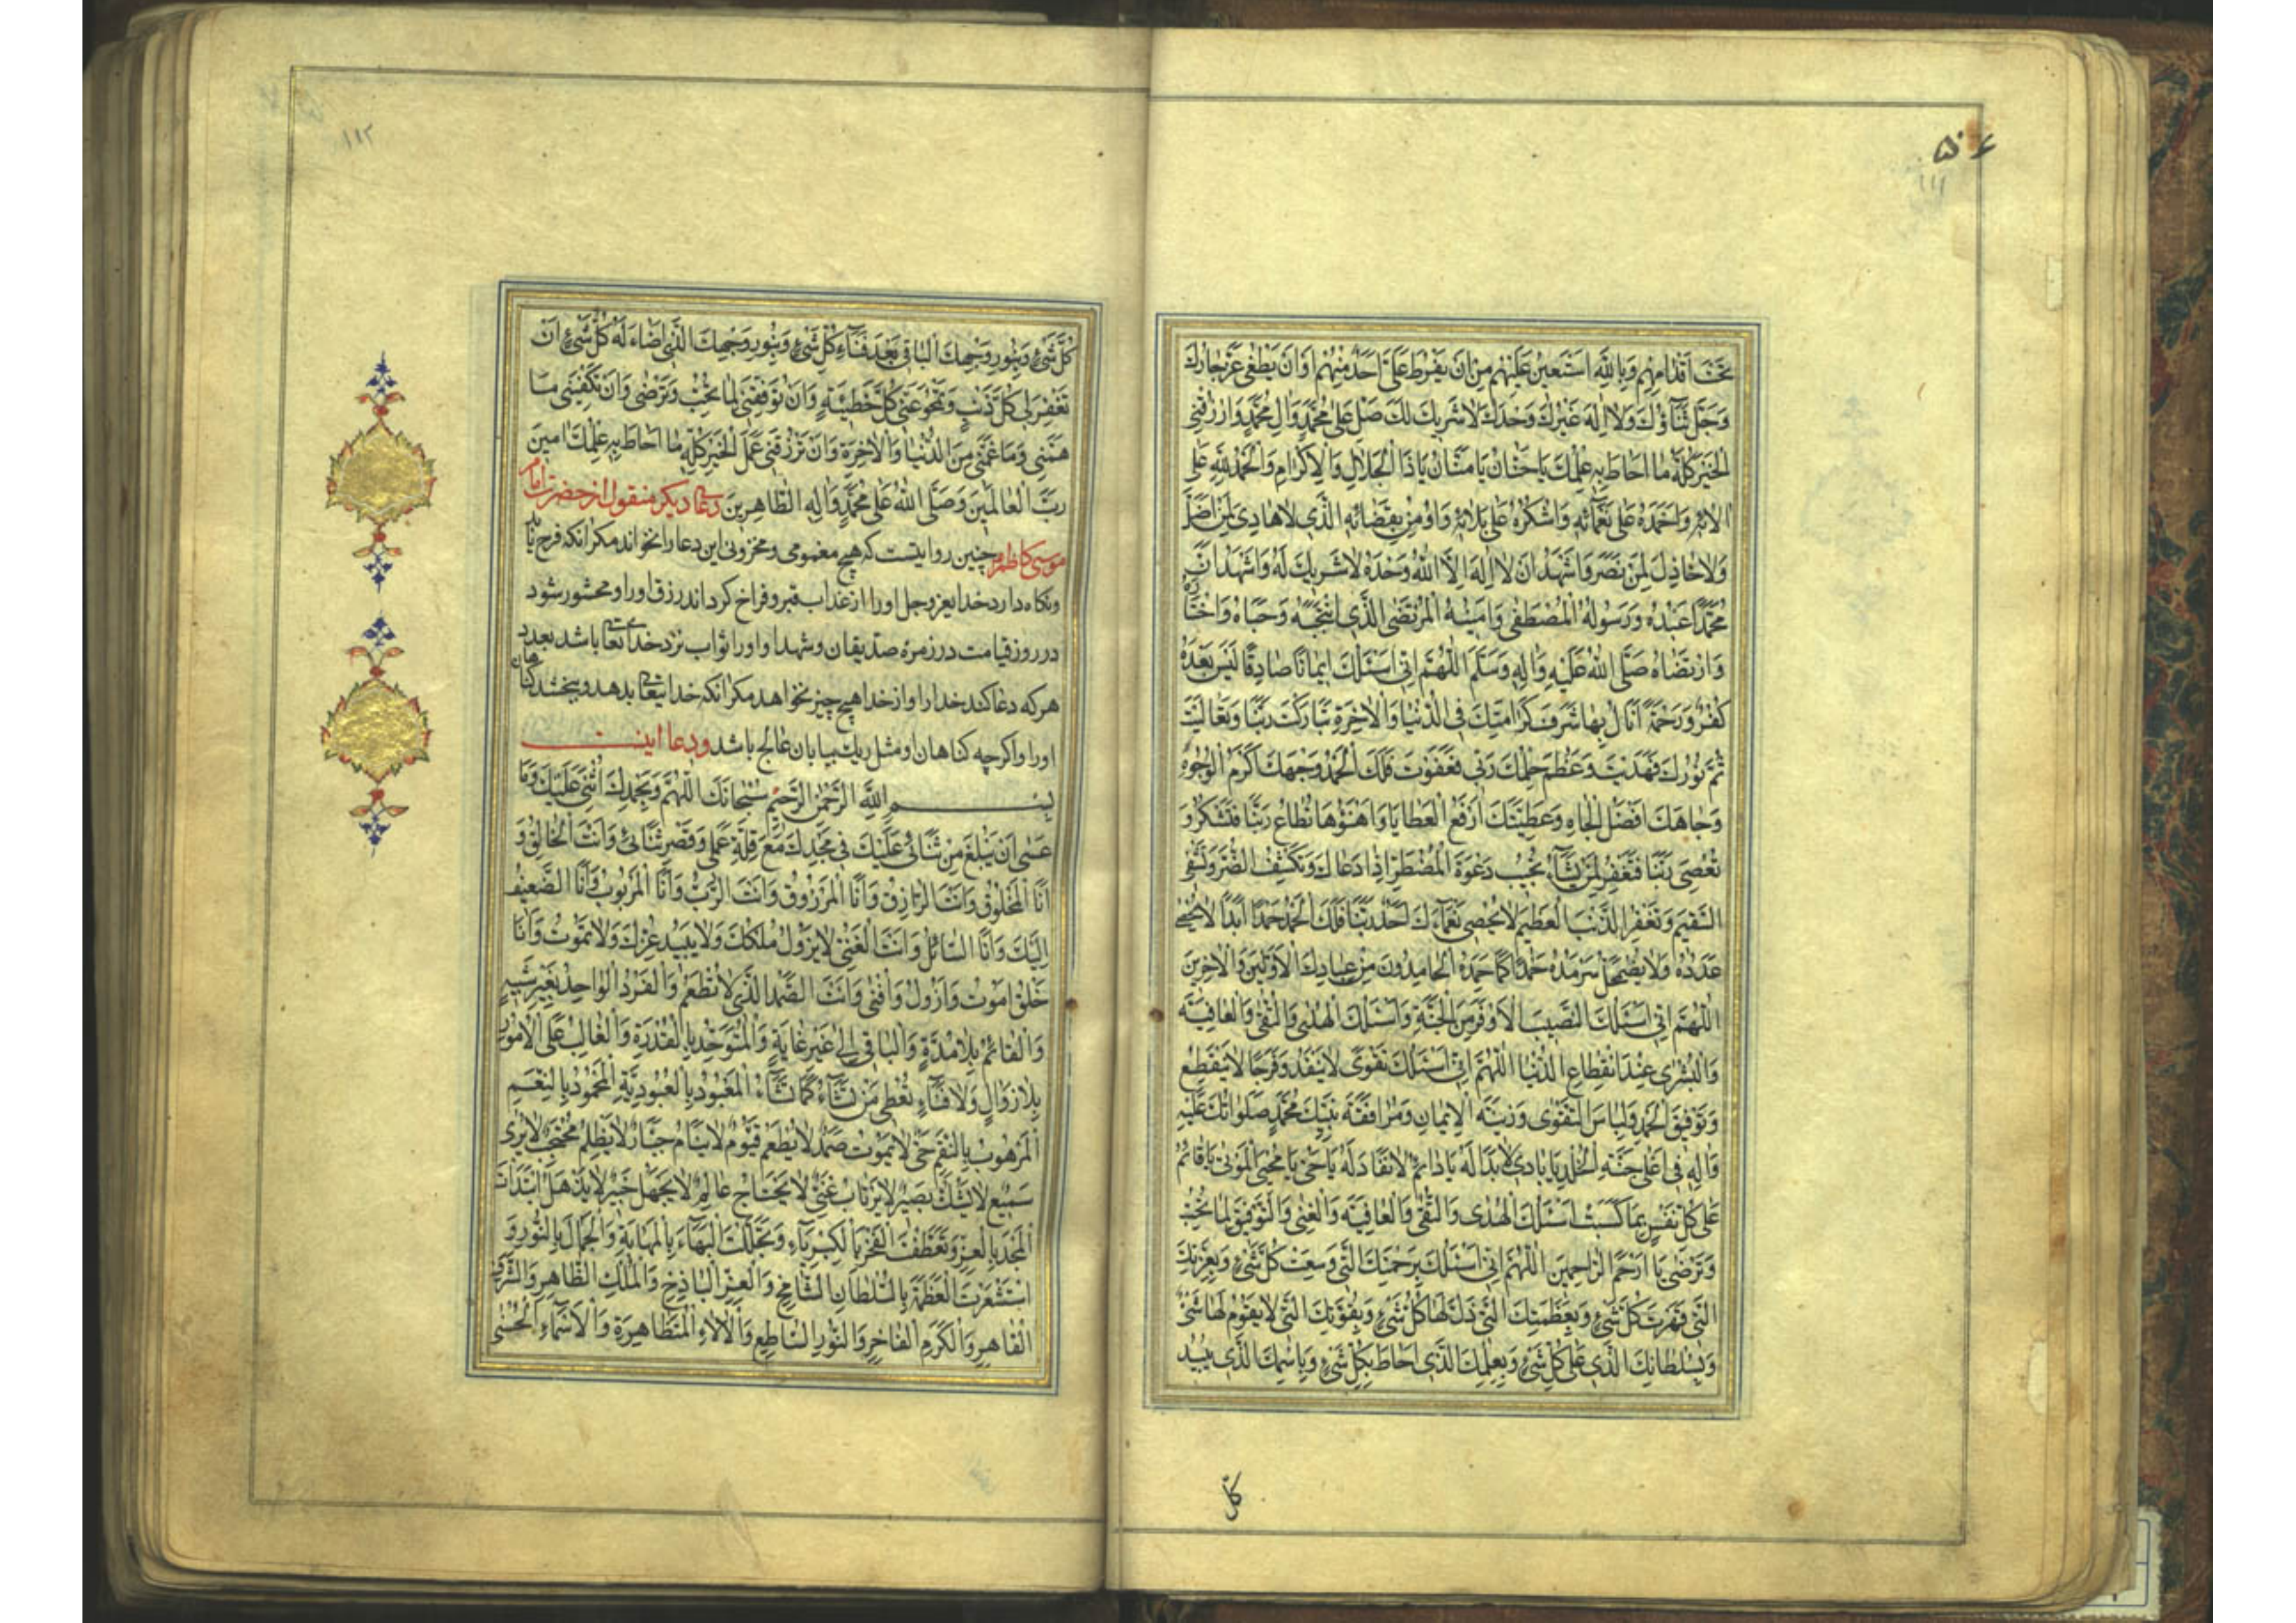 ۵۰۶
۱۱۱
تَحْتَ اَقْدامِهِم وَبِاللهِ اَسْتَعينُ عَلَيْهِمْ مِنْ اَنْ يَفْرُطَ عَلَيَّ اَحَدٌ مِنْهُمْ اَوْ اَنْ يَطْغى عَزَّ جارُكَ
وَجَلَّ ثَناؤُكَ وَلا اِلهَ غَيْرُكَ وَحْدَكَ لا شَريكَ لَكَ صَلِّ عَلى مُحَمَّدٍ وَالِ مُحَمَّدٍ وَارْزُقْنِي
الْخَيْرَ كُلَّهُ ما اَحاطَ بِهِ عِلْمُكَ يا حَنّانُ يا مَنّانُ يا ذَا الْجَلالِ وَالْاِكْرامِ وَالْحَمْدُ لِلّهِ عَلى
الائِهِ وَاَحْمَدُهُ عَلى نَعْمائِهِ وَاَشْكُرُهُ عَلى بَلائِهِ وَاُومِنُ بِقَضائِهِ الَّذي لا هادِيَ لِمَنْ اَضَلَّ
وَلا خاذِلَ لِمَنْ نَصَرَ وَاَشْهَدُ اَنْ لا اِلهَ اِلَّا اللهُ وَحْدَهُ لا شَريكَ لَهُ وَاَشْهَدُ اَنَّ
مُحَمَّدًا عَبْدُهُ وَرَسُولُهُ الْمُصْطَفى وَاَمينُهُ الْمُرْتَضَى الَّذي انْتَجَبَهُ وَحَباهُ وَاخْتارَهُ
وَارْتَضاهُ صَلَّى اللهُ عَلَيْهِ وَالِهِ وَسَلَّمَ اَللّهُمَّ اِنّي اَسْئَلُكَ ايمانًا صادِقًا لَيْسَ بَعْدَهُ
كُفْرٌ وَرَحْمَةً اَنالُ بِها شَرَفَ كَرامَتِكَ فِي الدُّنْيا وَالْاخِرَةِ تَبارَكْتَ رَبَّنا وَتَعالَيْتَ
تَمَّ نُورُكَ فَهَدَيْتَ وَعَظُمَ حِلْمُكَ رَبّي فَعَفَوْتَ فَلَكَ الْحَمْدُ وَجْهُكَ اَكْرَمُ الْوُجُوهِ
وَجاهُكَ اَفْضَلُ الْجاهِ وَعَطِيَّتُكَ اَرْفَعُ الْعَطايا وَاَهْنَؤُها تُطاعُ رَبَّنا فَتَشْكُرُ وَ
تُعْصى رَبَّنا فَتَغْفِرُ لِمَنْ تَشاءُ تُجيبُ دَعْوَةَ الْمُضْطَرِّ اِذا دَعاكَ وَتَكْشِفُ الضُّرَّ وَتَشْفِي
السَّقيمَ وَتَغْفِرُ الذَّنْبَ الْعَظيمَ لا يُحْصي نَعْماءَكَ اَحَدٌ رَبَّنا فَلَكَ الْحَمْدُ حَمْدًا اَبَدًا لا يُحْصى
عَدَدُهُ وَلا يَضْمَحِلُّ سَرْمَدُهُ حَمْدًا كَما حَمِدَهُ الْحامِدُونَ مِنْ عِبادِكَ الْاَوَّلينَ وَالْاخِرينَ
اَللّهُمَّ اِنّي اَسْئَلُكَ النَّصيبَ الْاَوْفَرَ مِنَ الْجَنَّةِ وَاَسْئَلُكَ الْهُدى وَالتُّقى وَالْعافِيَةَ
وَالْبُشْرى عِنْدَ انْقِطاعِ الدُّنْيا اَللّهُمَّ اِنّي اَسْئَلُكَ تَقْوًى لا يَنْفَدُ وَفَرَجًا لا يَنْقَطِعُ
وَتَوْفيقَ الْحَمْدِ وَلِباسَ التَّقْوى وَزينَةَ الْايمانِ وَمُرافَقَةَ نَبِيِّكَ مُحَمَّدٍ صَلَواتُكَ عَلَيْهِ
وَالِهِ في اَعْلى جَنَّةِ الْخُلْدِ يا بادِئُ لا بَدْاَ لَهُ يا دائِمُ لا نَفادَ لَهُ يا حَيُّ يا مُحْيِيَ الْمَوْتى يا قائِمُ
عَلى كُلِّ نَفْسٍ بِما كَسَبَتْ اَسْئَلُكَ الْهُدى وَالتُّقى وَالْعافِيَةَ وَالْغِنى وَالتَّوْفيقَ لِما تُحِبُّ
وَتَرْضى يا اَرْحَمَ الرّاحِمينَ اَللّهُمَّ اِنّي اَسْئَلُكَ بِرَحْمَتِكَ الَّتي وَسِعَتْ كُلَّ شَيْءٍ وَبِعِزَّتِكَ
الَّتي قَهَرَتْ كُلَّ شَيْءٍ وَبِعَظَمَتِكَ الَّتي ذَلَّ لَها كُلُّ شَيْءٍ وَبِقُوَّتِكَ الَّتي لا يَقُومُ لَها شَيْءٌ
وَبِسُلْطانِكَ الَّذي عَلى كُلِّ شَيْءٍ وَبِعِلْمِكَ الَّذي اَحاطَ بِكُلِّ شَيْءٍ وَبِاسْمِكَ الَّذي يُبيدُ
كلّ
۱۱۲
كُلَّ شَيْءٍ وَبِنُورِ وَجْهِكَ الْباقي بَعْدَ فَناءِ كُلِّ شَيْءٍ وَبِنُورِ وَجْهِكَ الَّذي اَضاءَ لَهُ كُلُّ شَيْءٍ اَنْ
تَغْفِرَ لي كُلَّ ذَنْبٍ وَتَمْحُوَ عَنّي كُلَّ خَطيئَةٍ وَاَنْ تُوَفِّقَني لِما تُحِبُّ وَتَرْضى وَاَنْ تَكْفِيَني ما
هَمَّني وَما غَمَّني مِنَ الدُّنْيا وَالْاخِرَةِ وَاَنْ تَرْزُقَني عَمَلَ الْخَيْرِ كُلِّهِ ما اَحاطَ بِهِ عِلْمُكَ امينَ
رَبَّ الْعالَمينَ وَصَلَّى اللهُ عَلى مُحَمَّدٍ وَالِهِ الطّاهِرينَ دعای دیکر منقول از حضرت امام
موسی کاظم چنین روایتست که هیچ مغمومی ومحزونی این دعا را نخواند مکر انکه فرح یابد
ونکاه دارد خدایعزوجل اورا از عذاب قبر وفراخ کرداند رزق اورا ومحشور شود
در روز قیامت در زمرهٔ صدیقان وشهدا واورا ثواب نزد خدای تعا باشد بعدد
هرکه دعا کند خدا را واز خدا هیچ چیز نخواهد مکر انکه خدایتعا بدهد وببخشد کناهان
اورا واکرچه کناهان او مثل ریک بیابان عالج باشد ودعا اینست
بِسْمِ اللهِ الرَّحْمنِ الرَّحيمِ سُبْحانَكَ اللّهُمَّ وَبِحَمْدِكَ اُثْني عَلَيْكَ وَما
عَسى اَنْ يَبْلُغَ مِنْ ثَنائي عَلَيْكَ في مَجْدِكَ مَعَ قِلَّةِ عَمَلي وَقَصْرِ ثَنائي وَاَنْتَ الْخالِقُ وَ
اَنَا الْمَخْلُوقُ وَاَنْتَ الرّازِقُ وَاَنَا الْمَرْزُوقُ وَاَنْتَ الرَّبُّ وَاَنَا الْمَرْبُوبُ وَاَنَا الضَّعيفُ
اِلَيْكَ وَاَنَا السّائِلُ وَاَنْتَ الْغَنِيُّ لا يَزُولُ مُلْكُكَ وَلا يَبيدُ عِزُّكَ وَلا تَمُوتُ وَاَنَا
خَلْقٌ اَمُوتُ وَاَزُولُ وَاَفْنى وَاَنْتَ الصَّمَدُ الَّذي لا تُطْعَمُ وَالْفَرْدُ الْواحِدُ بِغَيْرِ شَبيهٍ
وَالْقائِمُ بِلا مُدَّةٍ وَالْباقي اِلى غَيْرِ غايَةٍ وَالْمُتَوَحِّدُ بِالْقُدْرَةِ وَالْغالِبُ عَلَى الْاُمُورِ
بِلا زَوالٍ وَلا فَناءٍ تُعْطي مَنْ تَشاءُ كَما تَشاءُ الْمَعْبُودُ بِالْعُبُودِيَّةِ الْمَحْمُودُ بِالنِّعَمِ
الْمَرْهُوبُ بِالنِّقَمِ حَيٌّ لا يَمُوتُ صَمَدٌ لا يُطْعَمُ قَيُّومٌ لا يَنامُ جَبّارٌ لا يَظْلِمُ مُحْتَجِبٌ لا يُرى
سَميعٌ لا يَشُكُّ بَصيرٌ لا يَرْتابُ غَنِيٌّ لا يَحْتاجُ عالِمٌ لا يَجْهَلُ خَبيرٌ لا يَذْهَلُ ابْتَدَاْتَ
الْمَجْدَ بِالْعِزِّ وَتَعَطَّفْتَ الْفَخْرَ بِالْكِبْرِياءِ وَتَجَلَّلْتَ الْبَهاءَ بِالْمَهابَةِ وَالْجَمالَ بِالنُّورِ وَ
اسْتَشْعَرْتَ الْعَظَمَةَ بِالسُّلْطانِ الشّامِخِ وَالْعِزِّ الْباذِخِ وَالْمُلْكِ الظّاهِرِ وَالشَّرَفِ
الْقاهِرِ وَالْكَرَمِ الْفاخِرِ وَالنُّورِ السّاطِعِ وَالْالاءِ الْمُتَظاهِرَةِ وَالْاَسْماءِ الْحُسْنى